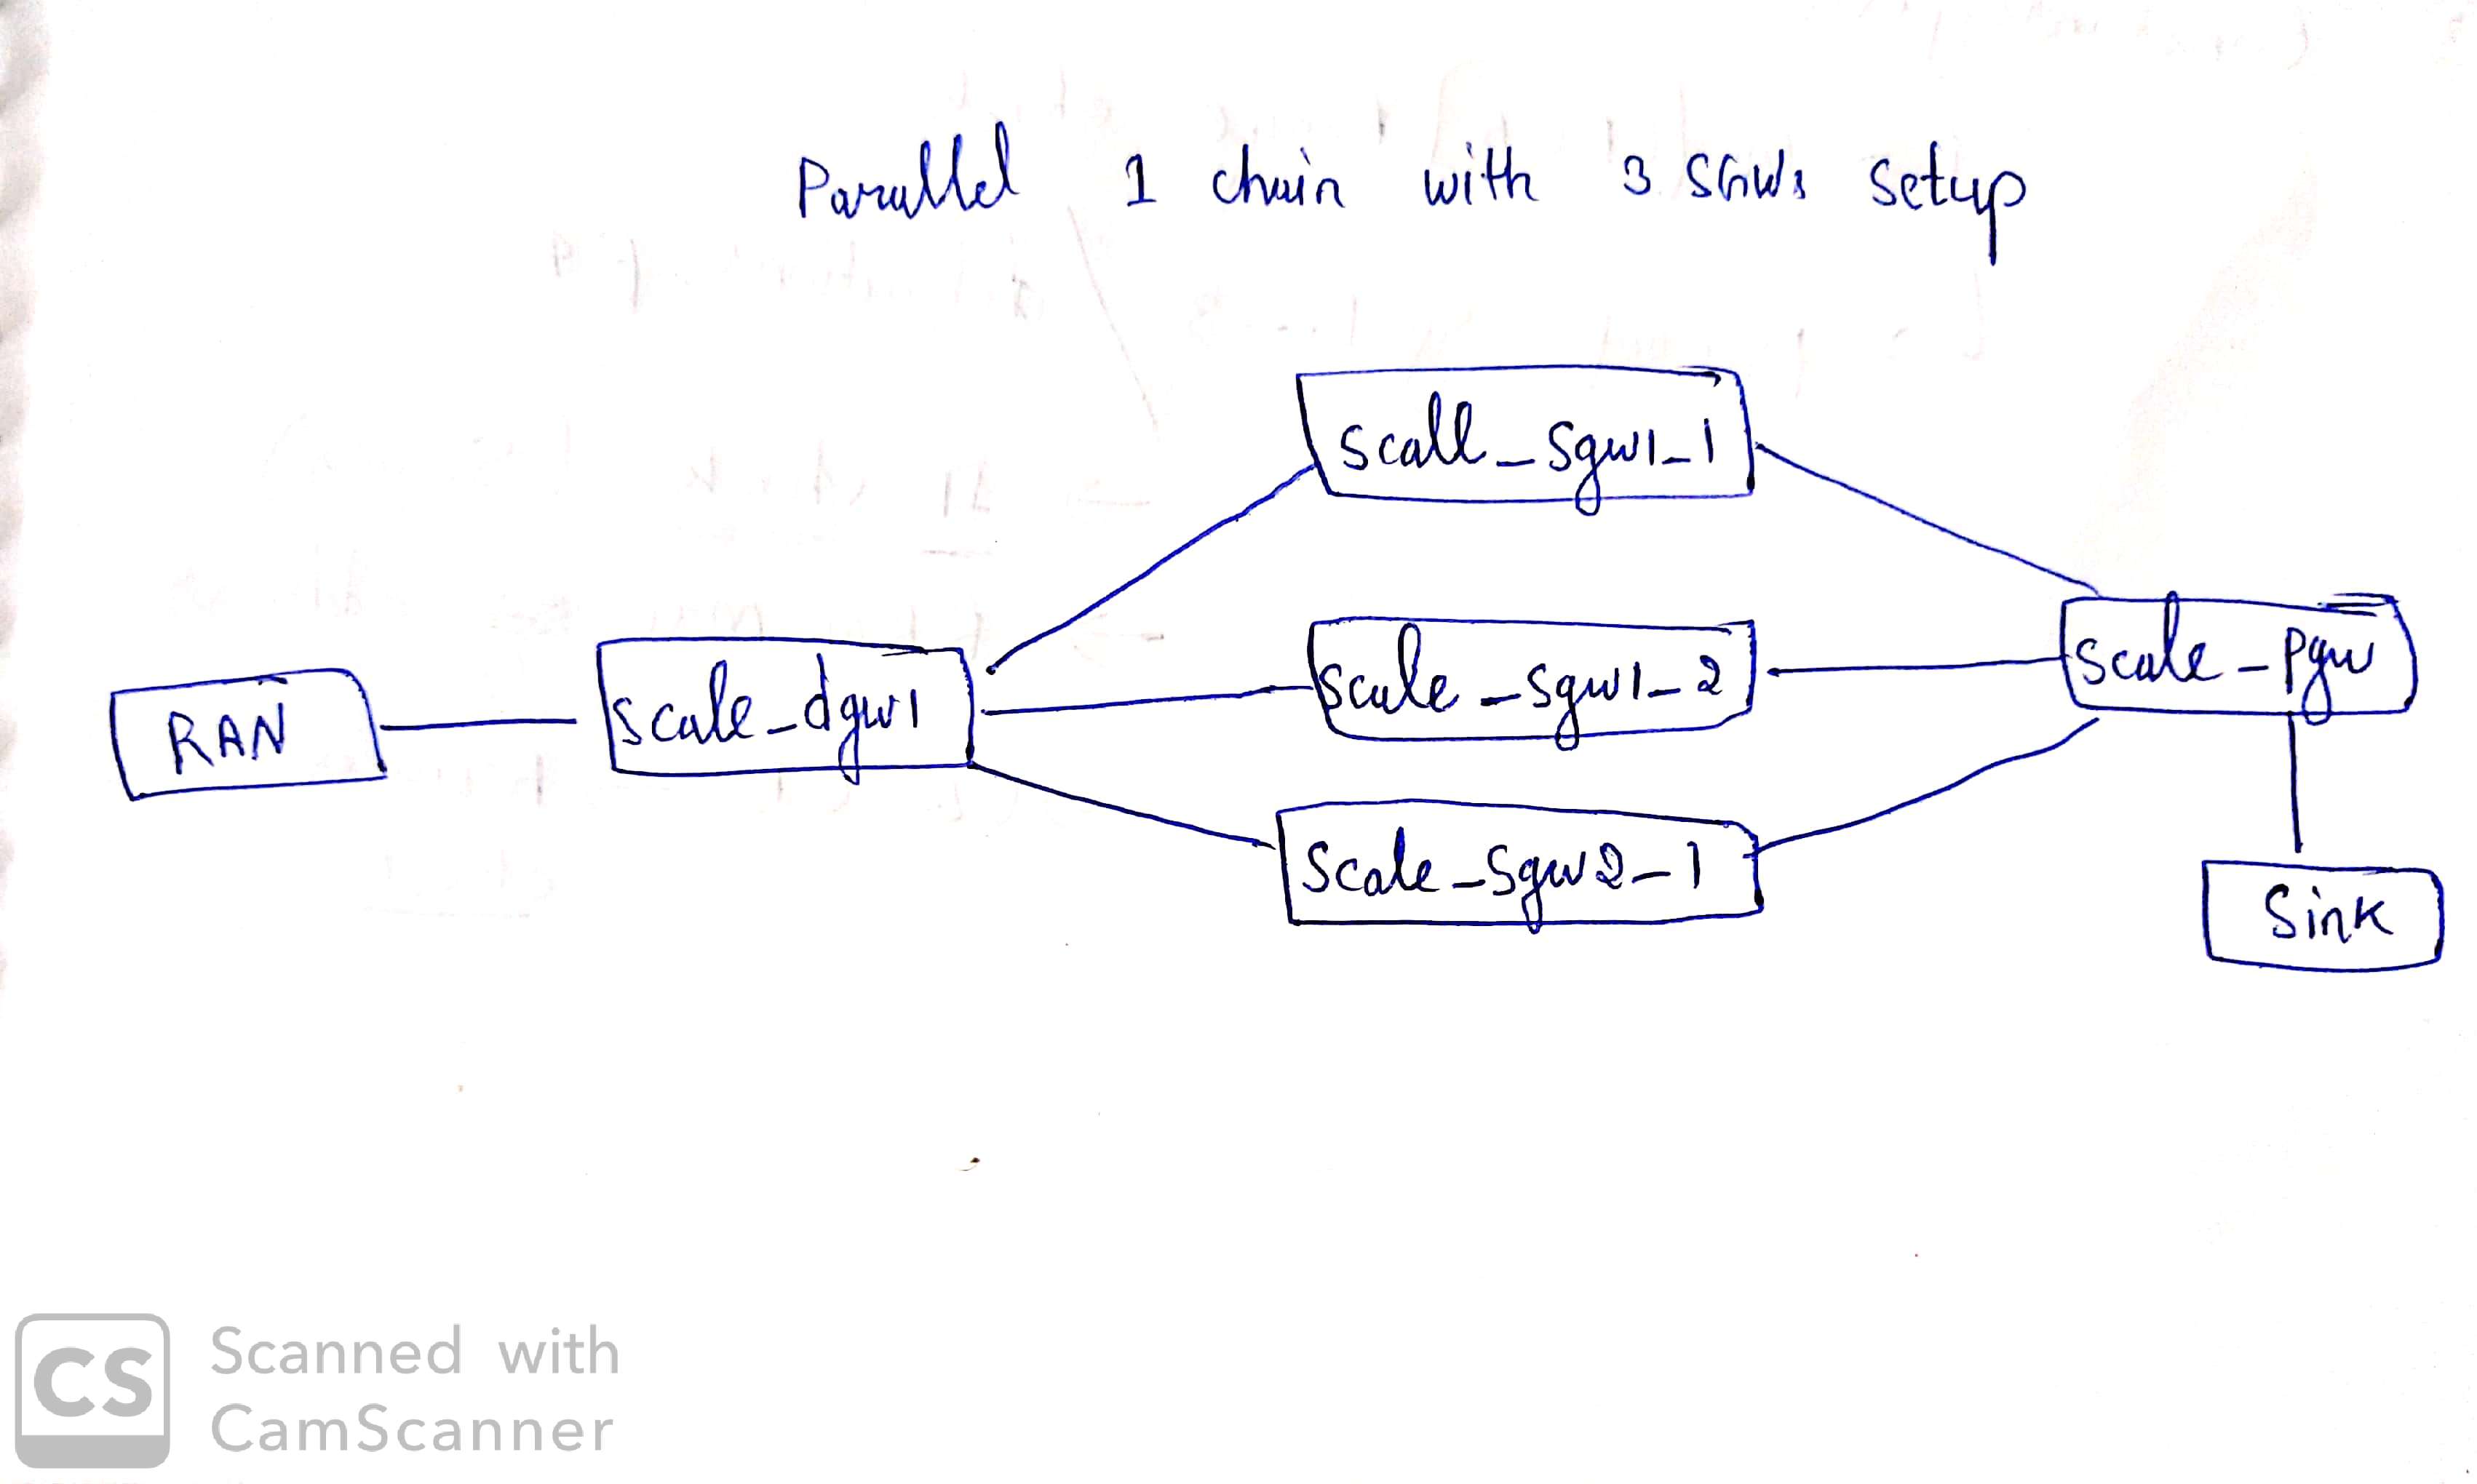 Parallel 1 chain with 3 SGWs setup
scale_sgw1_1
scale_sgw1_2
scale_pgw
RAN
scale_dgw1
scale_sgw2_1
Sink
CS
Scanned with
CamScanner